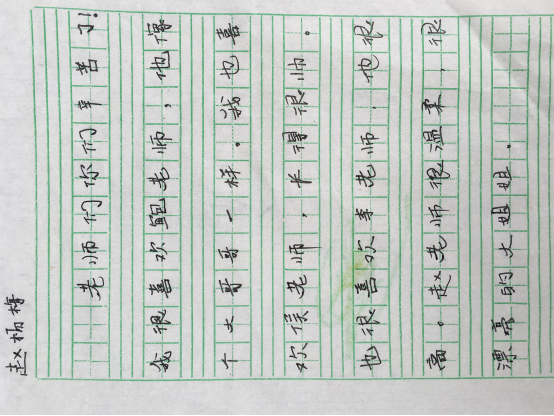 赵
老师们你们辛苦了!
我很喜欢鲍老师,他像
个大哥哥一样。我也喜
欢侯老师,长得很帅。
也很喜欢李老师,他很
高。赵老师很温柔,很
漂亮的大姐姐。